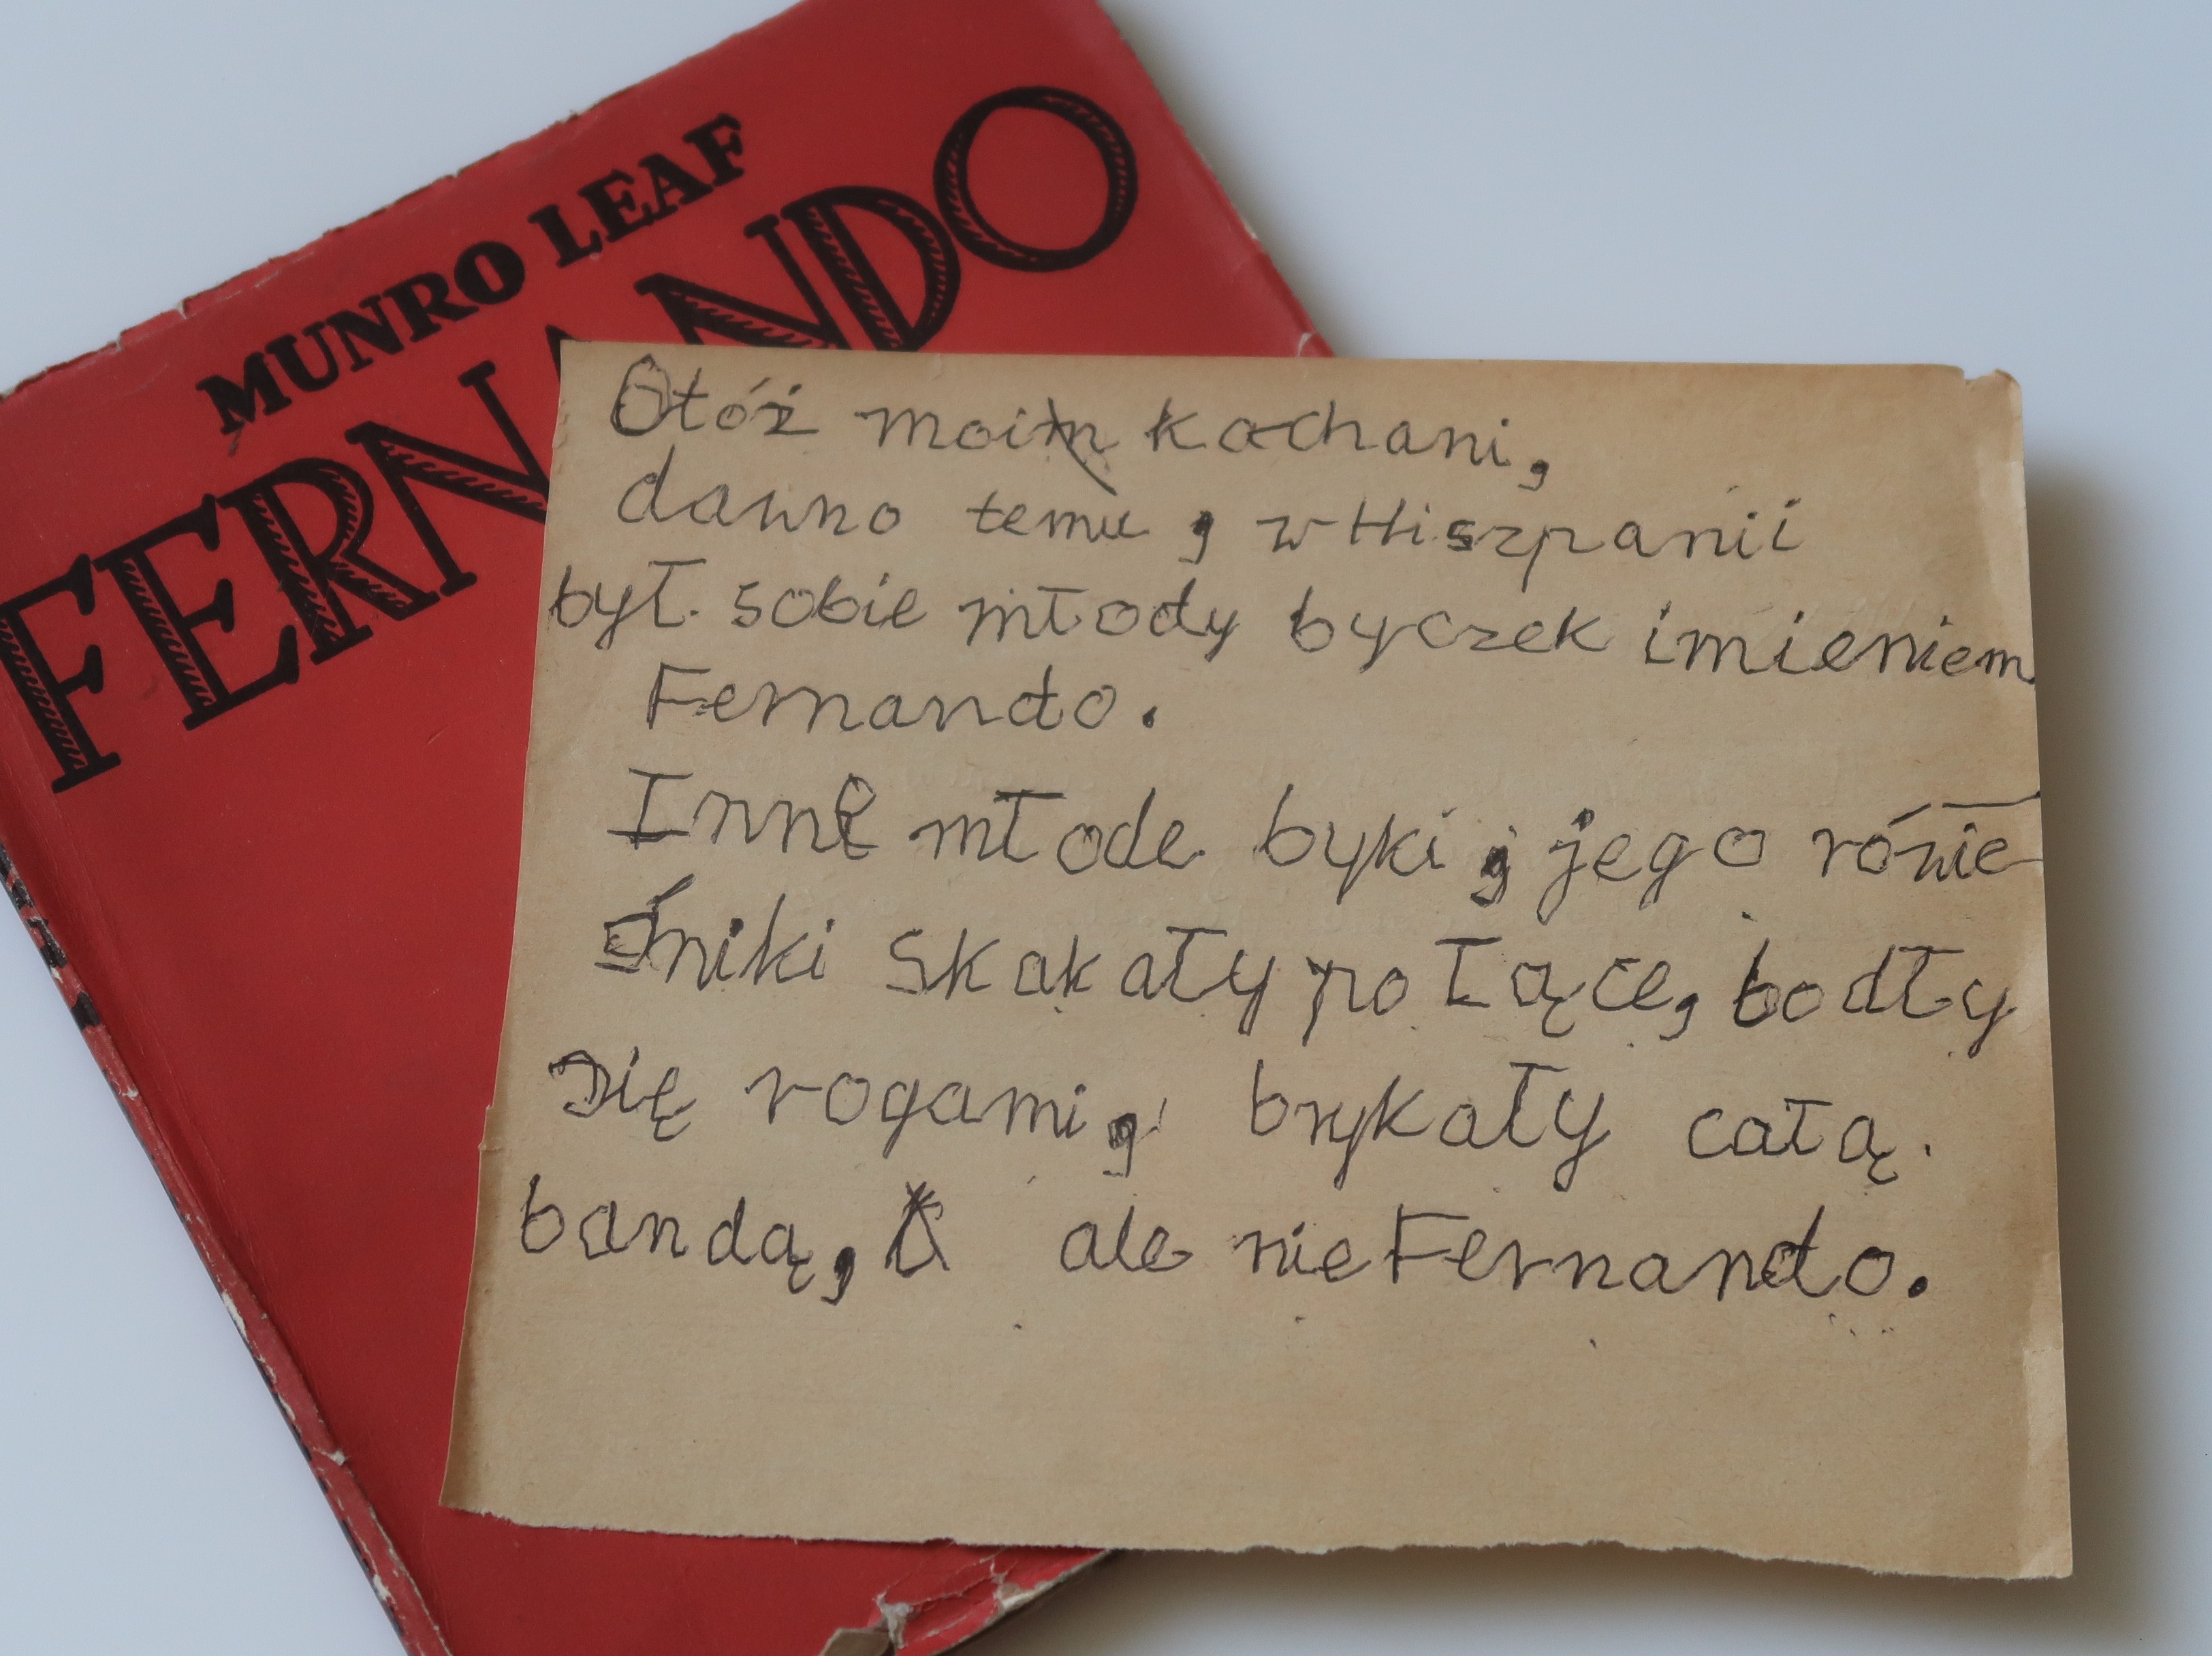 MUNRO LEAF
FERNANDO
Otóż moi kochani,
dawno temu, w Hiszpanii
był sobie młody byczek imieniem
Fernando.
Inne młode byki, jego rówie
śniki skakały po łące, bodły
się rogami, brykały całą
bandą, ale nie Fernando.